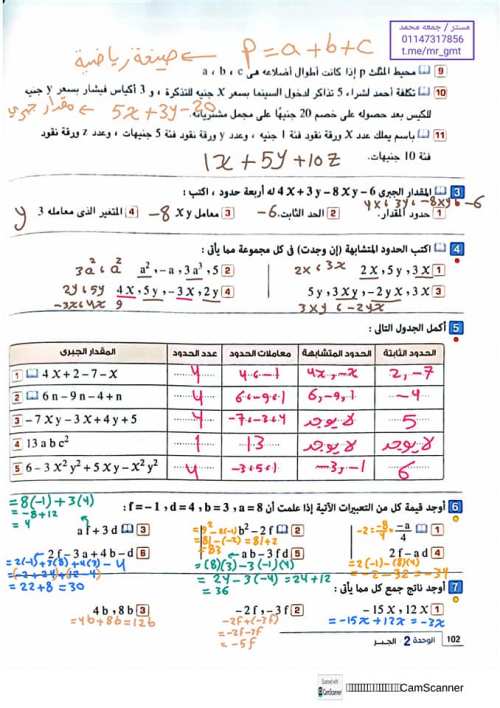 مستر / جمعه محمد
01147317856
t.me/mr_gmt
P = a + b + c ← صيغة رياضية
9 محيط المثلث p إذا كانت أطوال أضلاعه هى a ، b ، c
10 تكلفة أحمد لشراء 5 تذاكر لدخول السينما بسعر X جنيه للتذكرة ، و 3 أكياس فيشار بسعر y جنيه
للكيس بعد حصوله على خصم 20 جنيهًا على مجمل مشترياته.
5x + 3y - 20 ← مقدار جبري
11 باسم يملك عدد X ورقة نقود فئة 1 جنيه ، وعدد y ورقة نقود فئة 5 جنيهات ، وعدد z ورقة نقود
فئة 10 جنيهات.
1x + 5y + 10z
3 المقدار الجبرى 4 X + 3 y – 8 X y – 6 له أربعة حدود ، اكتب :
4x ، 3y ، -8xy ، -6
1 حدود المقدار.
2 الحد الثابت. -6
3 معامل X y -8
4 المتغير الذى معامله 3 y
4 اكتب الحدود المتشابهة (إن وجدت) فى كل مجموعة مما يأتى :
1 2 X , 5 y , 3 X 2x ، 3x
2 a² , – a , 3 a³ , 5
3 5 y , 3 X y , – 2 y X , 3 X 3xy ، -2yx
4 4 X , 5 y , – 3 X , 2 y 2y ، 5y
-3x ، 4x
5 أكمل الجدول التالى :
المقدار الجبرى عدد الحدود معاملات الحدود الحدود المتشابهة الحدود الثابتة
1 4 X + 2 – 7 – X 4 4 ، -1 4x, -x 2, -7
2 6 n – 9 n – 4 + n 4 6 ، -9 ، 1 6, -9, 1 -4
3 – 7 X y – 3 X + 4 y + 5 4 -7 ، -3 ، 4 لا يوجد 5
4 13 a b c² 1 13 لا يوجد لا يوجد
5 6 – 3 X² y² + 5 X y – X² y² 4 -3 ، 5 ، 1 -3, -1 6
6 أوجد قيمة كل من التعبيرات الآتية إذا علمت أن a = 8 ، b = 3 ، d = 4 ، f = – 1 :
1 –a/4 = -8/4 = -2
2 b² – 2 f
= 81 - (-2) = 81 + 2
= 83
3 a f + 3 d
= 8(-1) + 3(4)
= -8 + 12
= 4
4 2 f – a d
= 2(-1) - (8)(4)
= -2 - 32 = -34
5 a b – 3 f d
= (8)(3) - 3(-1)(4)
= 24 - 3(-4) = 24 + 12
= 36
6 2 f – 3 a + 4 b – d
= 22 + 8 = 30
7 أوجد ناتج جمع كل مما يأتى :
1 – 15 X , 12 X
= -15x + 12x = -3x
2 – 2 f , – 3 f
-2f + (-3f)
= -2f - 3f
= -5f
3 4 b , 8 b
= 4b + 8b = 12b
102 الوحدة 2 الجبر
Scanned with
CamScanner
CamScanner